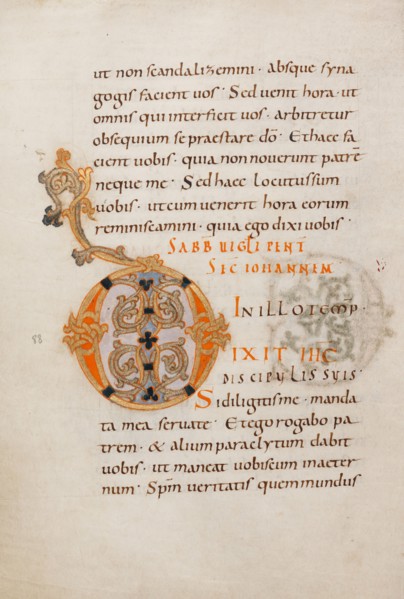 ut non scandalizemini · absque syna
gogis facient uos · Sed uenit hora · ut
omnis qui interficit uos · arbitretur
obsequium se praestare dō · Et haec fa
cient uobis · quia non nouerunt patrē
neque me · Sed haec locutus sum
uobis · ut cum uenerit hora eorum
reminiscamini · quia ego dixi uobis ·
SABB UIGL PENT
SEC IOHANNEM
IN ILLO TEMP ·
DIXIT IHC
DISCIPULIS SUIS ·
Si diligitis me · manda
ta mea seruate · Et ego rogabo pa
trem · & alium paraclytum dabit
uobis · ut maneat uobiscum in aeter
num · Spm̄ ueritatis quem mundus
88